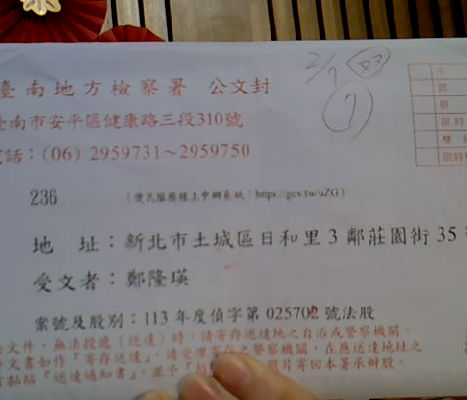 臺南地方檢察署 公文封
臺南市安平區健康路三段310號
電話：(06) 2959731～2959750
2/7
7
236
(便民服務線上申辦系統：https://gov.tw/uZG)
地 址：新北市土城區日和里3鄰莊園街35
受文者：鄭隆瑛
案號及股別：113年度偵字第025702號法股
文件，無法投遞（送達）時，請寄存送達地之自治或警察機關。
文書如作『寄存送達』，請受理寄存之警察機關，在應送達地址之
黏貼『送達通知書』，並予 照片寄回本署承辦股。